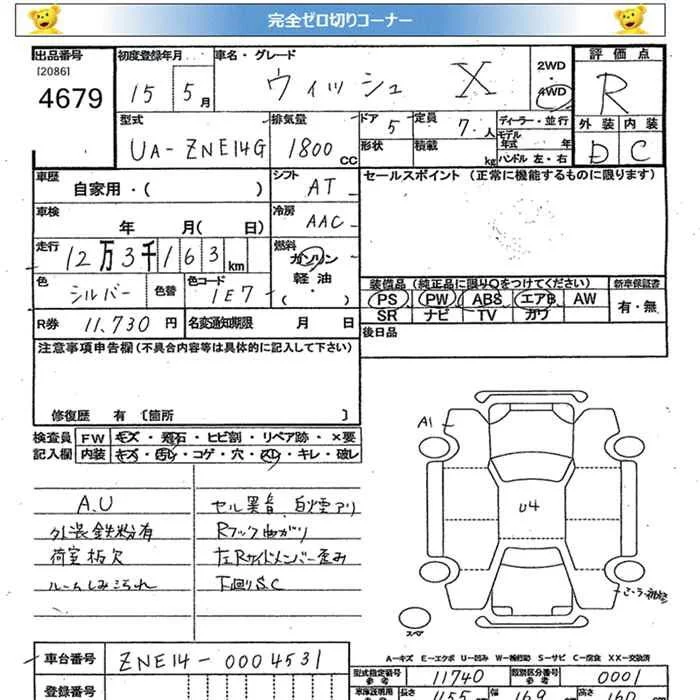 完全ゼロ切りコーナー
出品番号 初度登録年月 車名・グレード 2WD 評価点
[2086]
4679 15 5月 ウィッシュ X ・ 4WD R
型式 排気量 ドア 5 定員 7.人 ディーラー・並行 外装 内装
モデル年式 年
UA-ZNE14G 1800cc 形状 積載 kg ハンドル 左・右 D C
車歴 自家用・( ) シフト AT セールスポイント (正常に機能するものに限ります)
車検 年 月( 日) 冷房 AAC
走行 12万3千163km 燃料 ガソリン
軽油
・( )・
色 シルバー 色替 色コード 1E7 装備品 (純正品に限り○をつけてください) 新車保証書
PS PW ABS エアB AW 有・無
SR ナビ TV カワ
R券 11,730円 名変通知期限 月 日 後日品
注意事項申告欄 (不具合内容等は具体的に記入して下さい)
修復歴 有 〔箇所 〕
検査員 FW キズ・飛石・ヒビ割・リペア跡・×要
記入欄 内装 キズ・汚レ・コゲ・穴・スレ・キレ・破レ
A1
U4
A.U セル異音 白煙アリ
外装鉄粉有 Rフック曲がり
荷室板欠 左Rサイドメンバー歪み
ルームしみ汚れ 下廻りS.C
スペア
A-キズ E-エクボ U-凹み W-補修跡 S-サビ C-腐食 XX-交換済
車台番号 ZNE14-0004531
型式指定番号 参考 11740 類別区分番号 参考 0001
登録番号
車庫証明用 長さ 455 幅 169 高さ 160